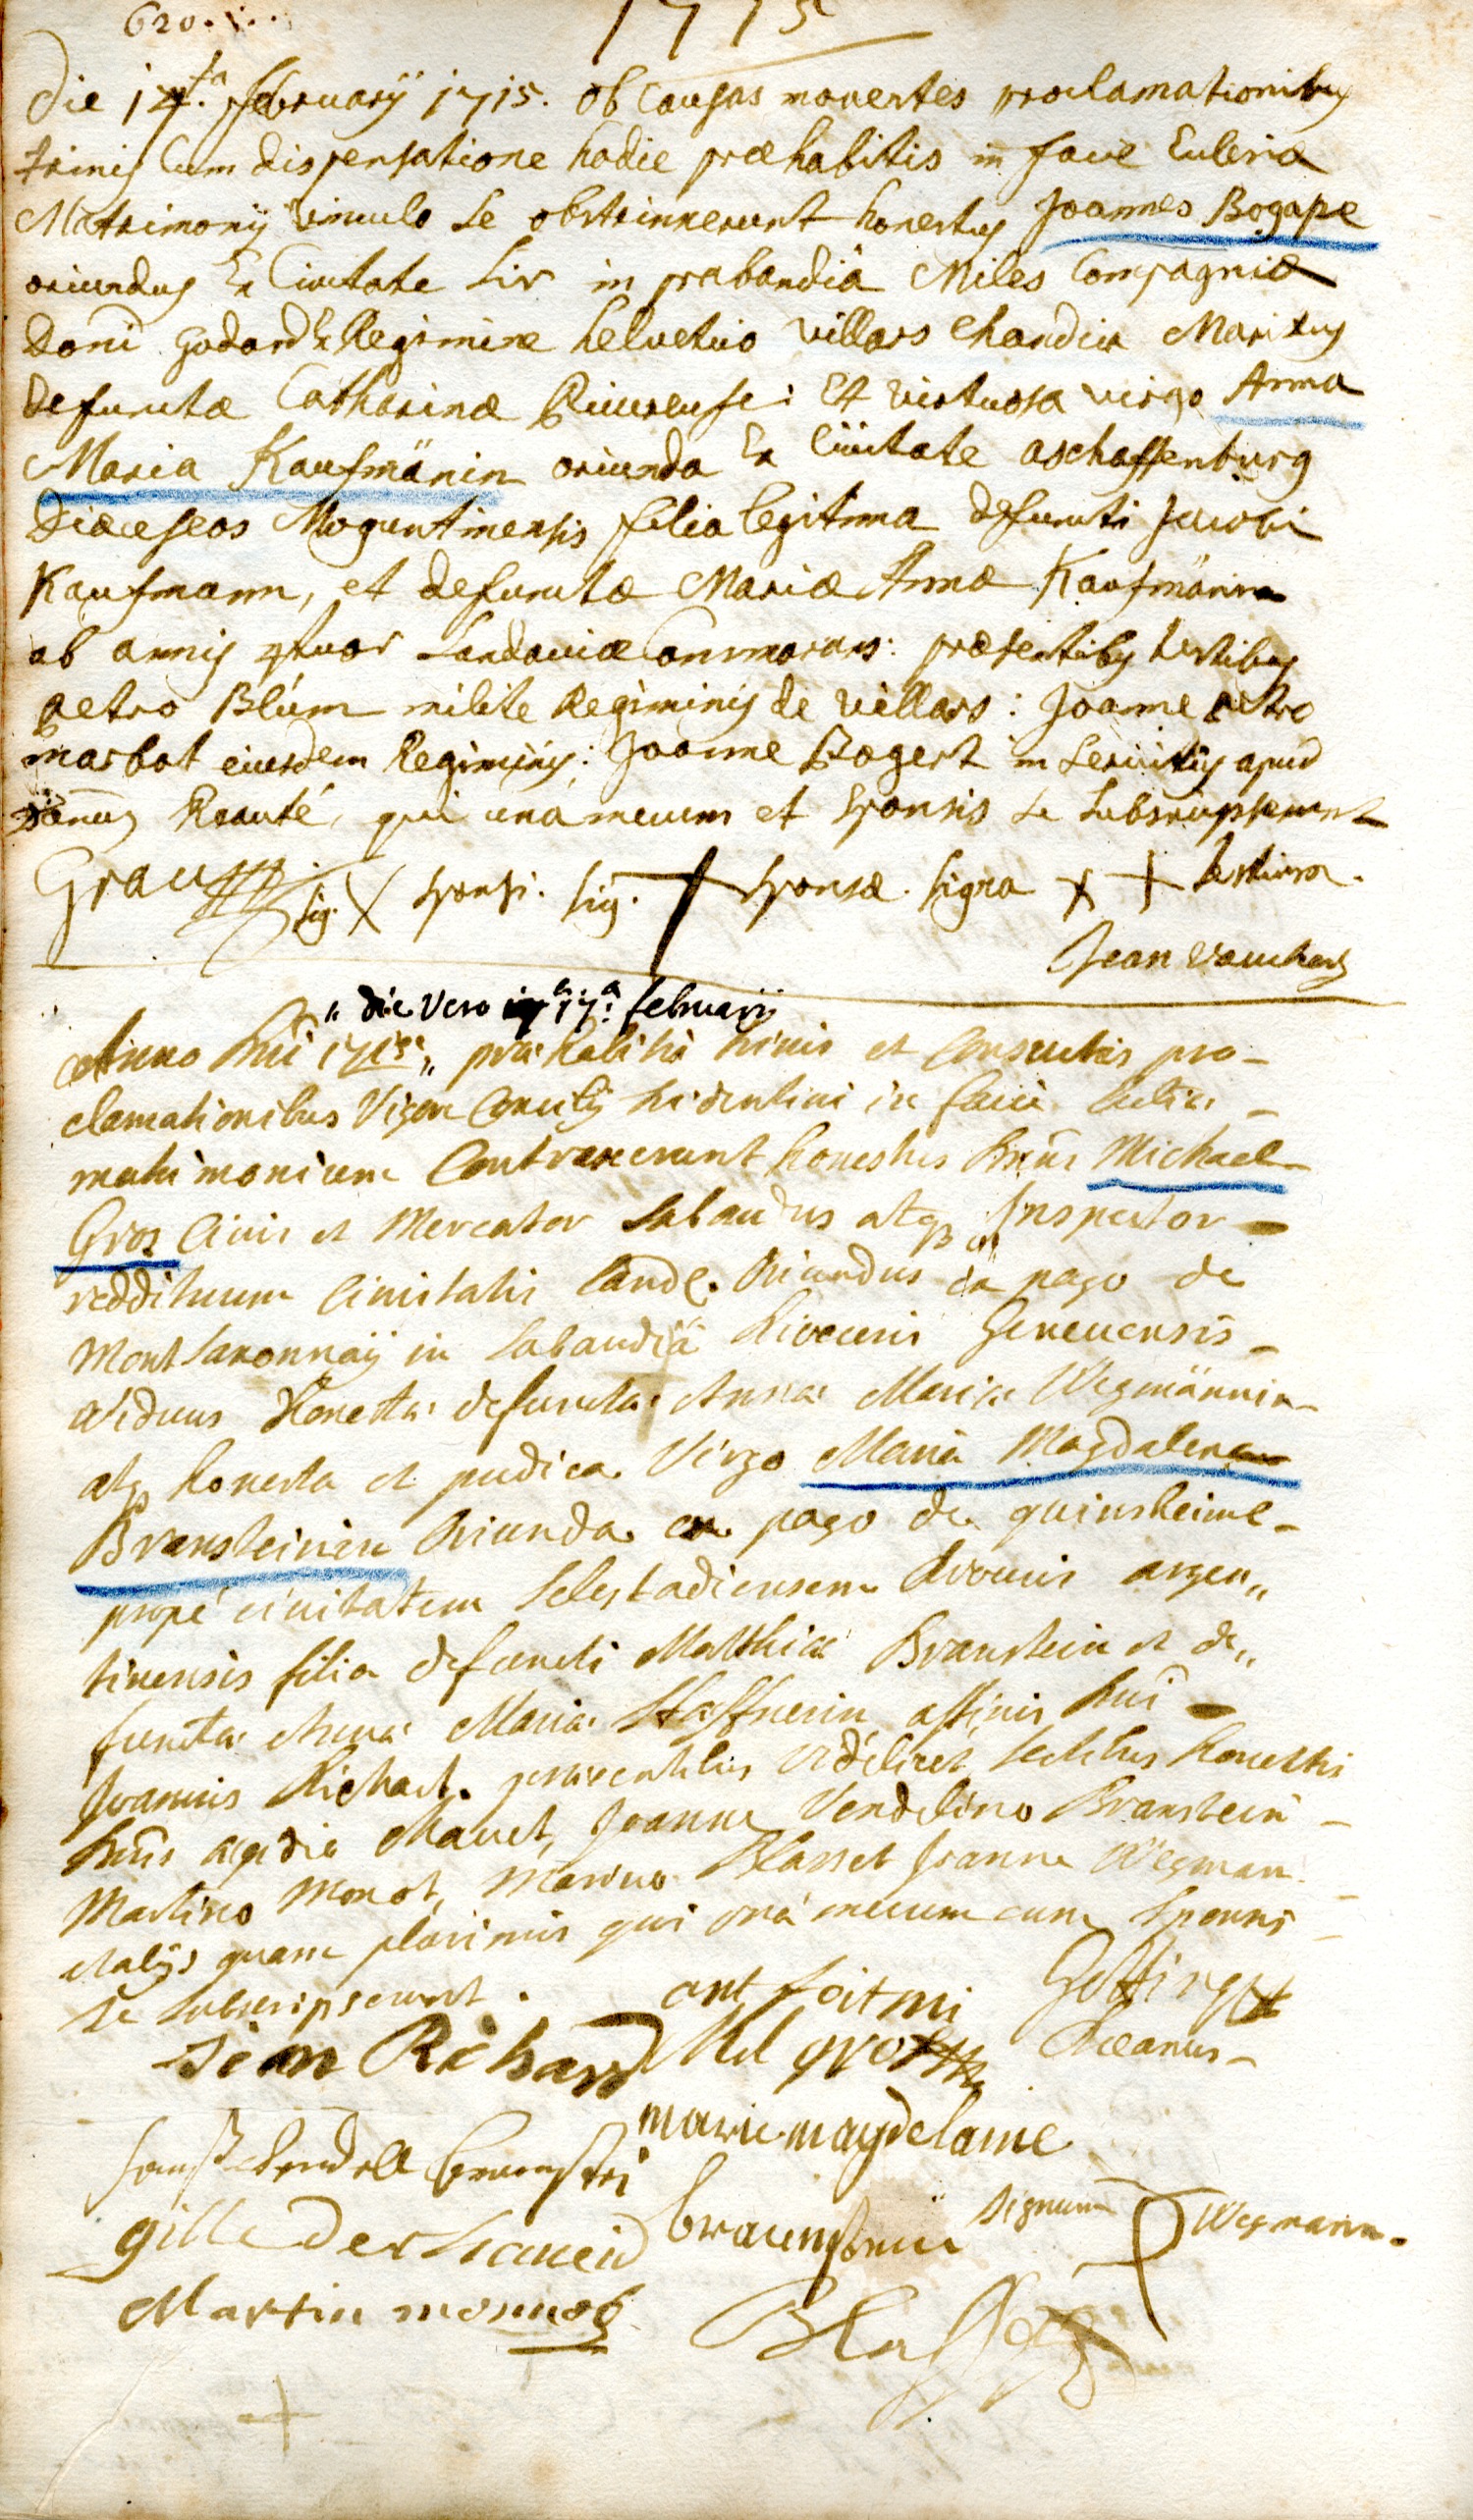 620.
1715
Die 14ta. february 1715. ob causas moventes proclamationibus
trinis cum dispensatione hodie præhabitis in facie Ecclesiæ
Matrimonij vinculo se obstrinxerunt honestus Joannes Bogape
oriundus Ex Civitate Lir in prabandiâ Miles Compagniæ
Doni Godard Ex Regimine helvetico villars Chandieu Maritus
defunctæ Catharinæ et virtuosa virgo Anna
Maria Kaufmänin oriunda Ex Civitate aschaffenburg
Diæceseos Moguntinensis filia legitima defuncti Jacobi
Kaufmann, et defunctæ Mariæ Annæ Kaufmännin
ab annis qtuor Landaviæ Commorans: præsentibus testibus
petro Blúm milite Regiminis de villars: Joanne petro
marbot eiusdem Regiminis: Joanne Bogert in servitijs apud
Reauté, qui unà mecum et sponsis se subscripserunt
Grau sig. X sponsi. sig. + sponsæ. signa x + testium.
Jean
" die vero 17a. februarij
Anno Dni 1715 " præhabitis trinis et consuetis pro-
clamationibus Vigore Concilij tridentini in facie Ecclia -
matrimonium Contraxerunt honestus Dnus Michael
Gros Civis et Mercator Sabaudus atq Inspector
reddituum Civitatis Land. Oriundus ex pago de
Montsaxonnaÿ in Sabaudiâ Diocesis Genevensis -
viduus Honestæ defunctæ Annæ Mariæ Wegmännin
atq honesta et pudica Virgo Maria Magdalena
Bransteinin Oriunda ex pago de quinsheime -
propé civitatem Selestadiensem Diocesis argen"
tinensis filia defuncti Matthiæ Branstein et de"
functæ Annæ Mariæ Haffnerin affinis Dni
Joannis Richart. præsentibus videlicet testibus honestis
Dnis ægidio Mauet, Joanne Vendelino Branstein -
Martino Monot, Marino Blasset Joanne Wegman -
et alijs quam plurimis qui una mecum cum Sponsis
se subscripserunt. ant foitmi
Jean Richard Mel gros Decanus -
marie magdelaine
braunstein signum Wegmann.
gille
Martin monnot Blasset